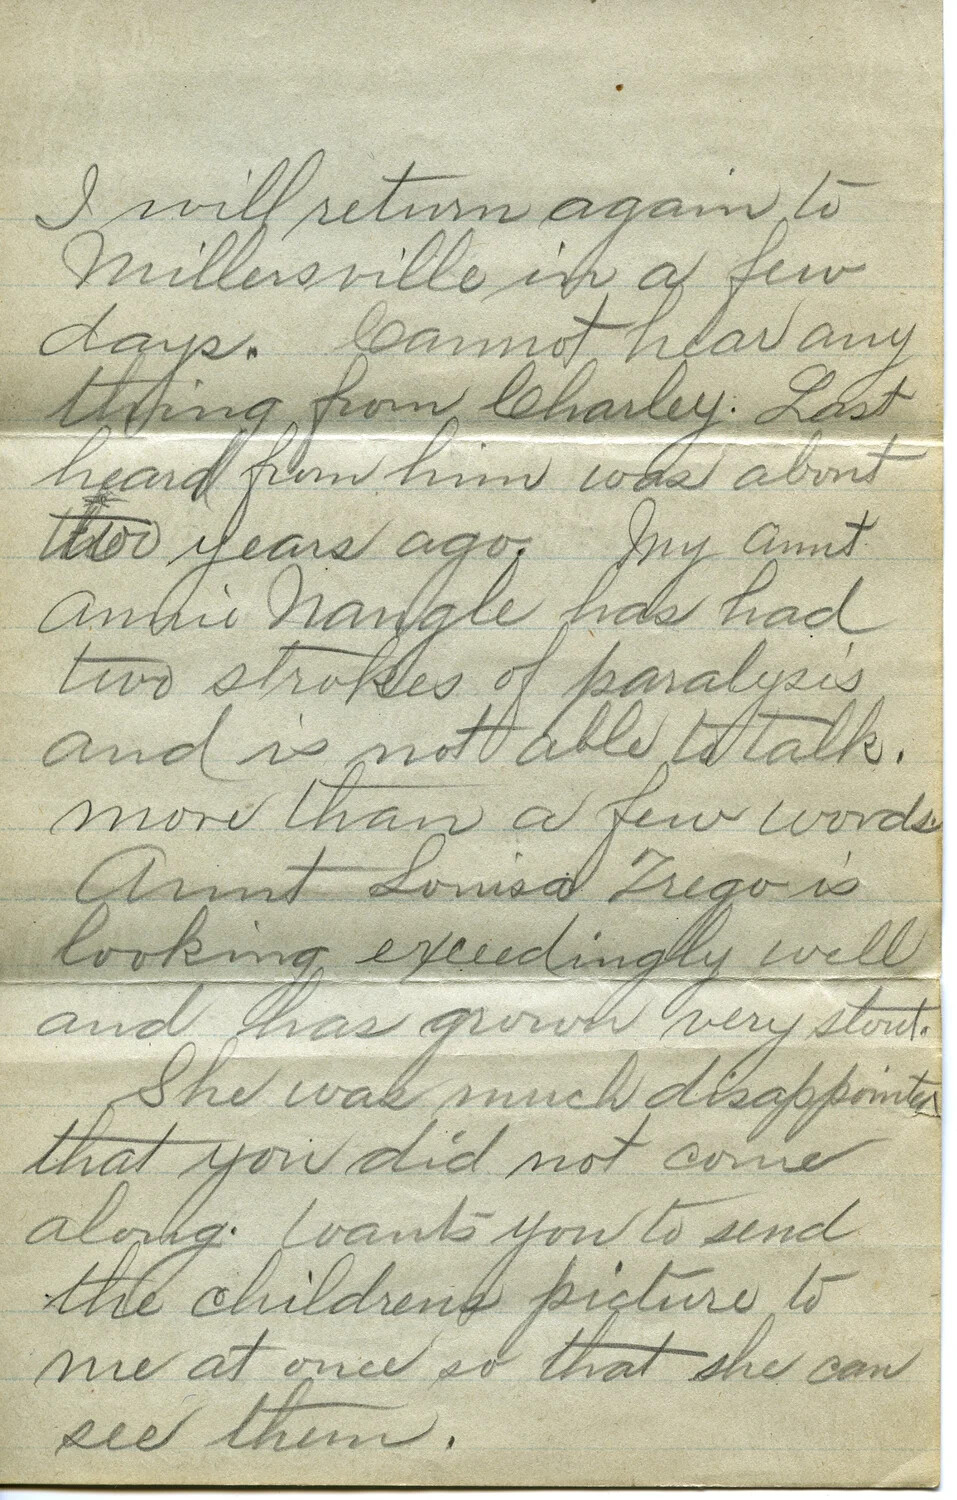 I will return again to
Millersville in a few
days. Cannot hear any
thing from Charley. Last
heard from him was about
two years ago. My aunt
Annie Nangle has had
two strokes of paralysis
and is not able to talk.
more than a few words
Aunt Louisa Trego is
looking exceedingly well
and has grown very stout.
She was much disappointed
that you did not come
along. Wants you to send
the childrens picture to
me at once so that she can
see them.